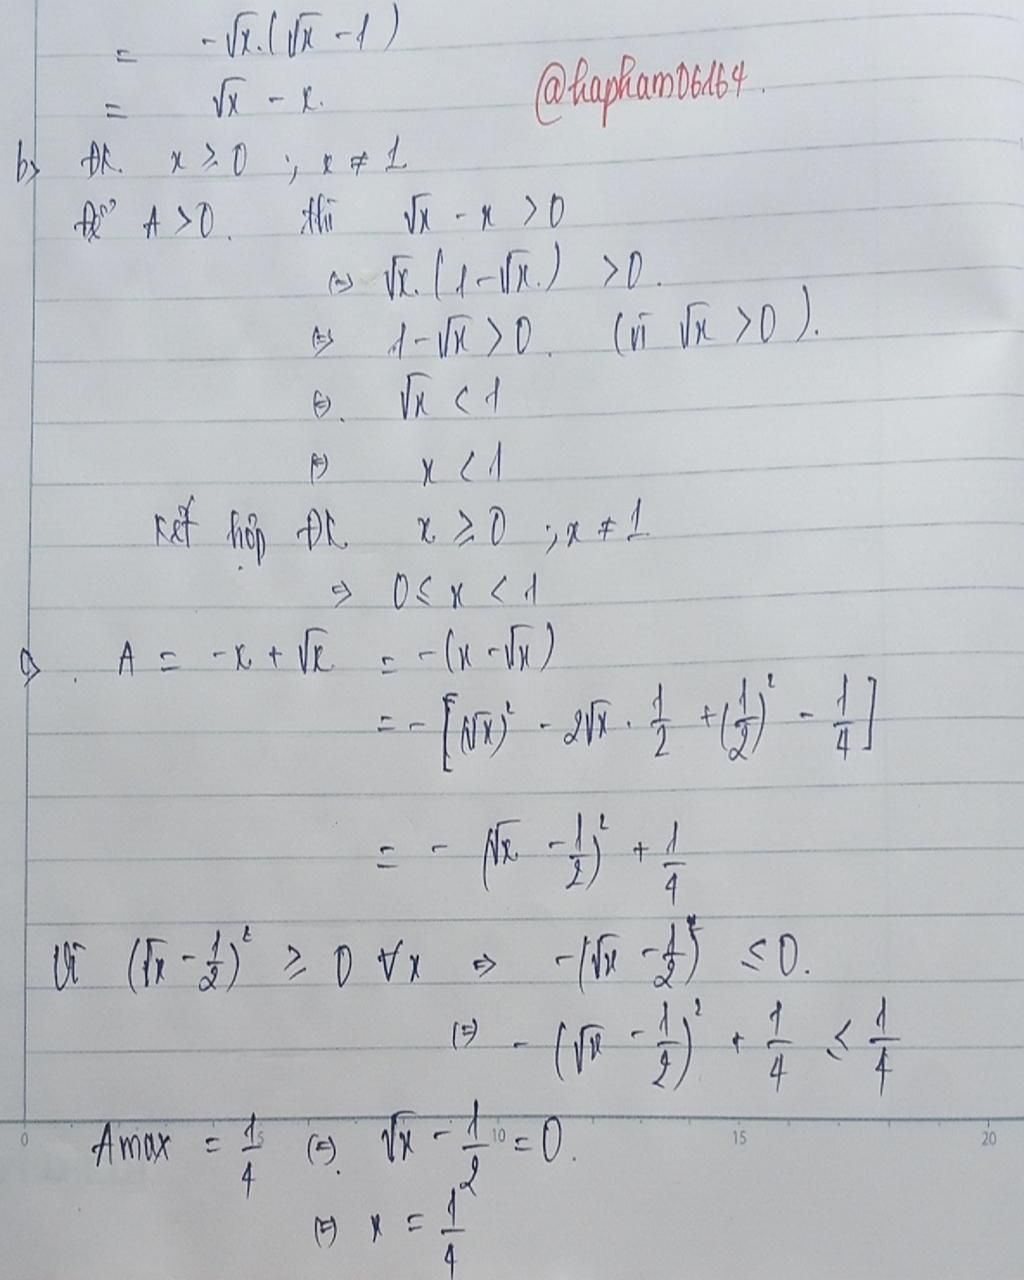 = -√x.(√x - 1)
= √x - x.
@hapham06164.
b) ĐK. x ≥ 0 ; x ≠ 1
Để A > 0. thì √x - x > 0
(=) √x.(1 - √x.) > 0.
(=) 1 - √x > 0. (vì √x > 0).
(=). √x < 1
(=) x < 1
Kết hợp ĐK x ≥ 0 ; x ≠ 1
=> 0 ≤ x < 1
c) A = -x + √x = -(x - √x)
= -[(√x)² - 2√x . 1/2 + (1/2)² - 1/4]
= - (√x - 1/2)² + 1/4
Vì (√x - 1/2)² ≥ 0 ∀x => -(√x - 1/2)² ≤ 0.
(=) - (√x - 1/2)² + 1/4 ≤ 1/4
0 5 10 15 20
Amax = 1/4 (=). √x - 1/2 = 0.
(=) x = 1/4